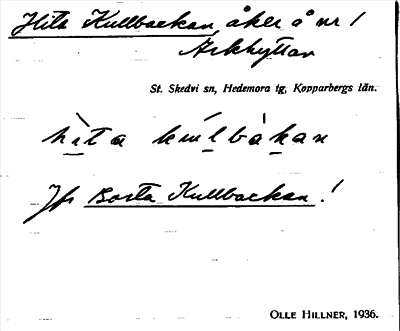 Hita Kullbackan, åker å nr 1
Arkhyttan
St. Skedvi sn, Hedemora tg, Kopparbergs län.
hìta kúlbàkan
Jfr Borta Kullbackan!
OLLE HILLNER, 1936.